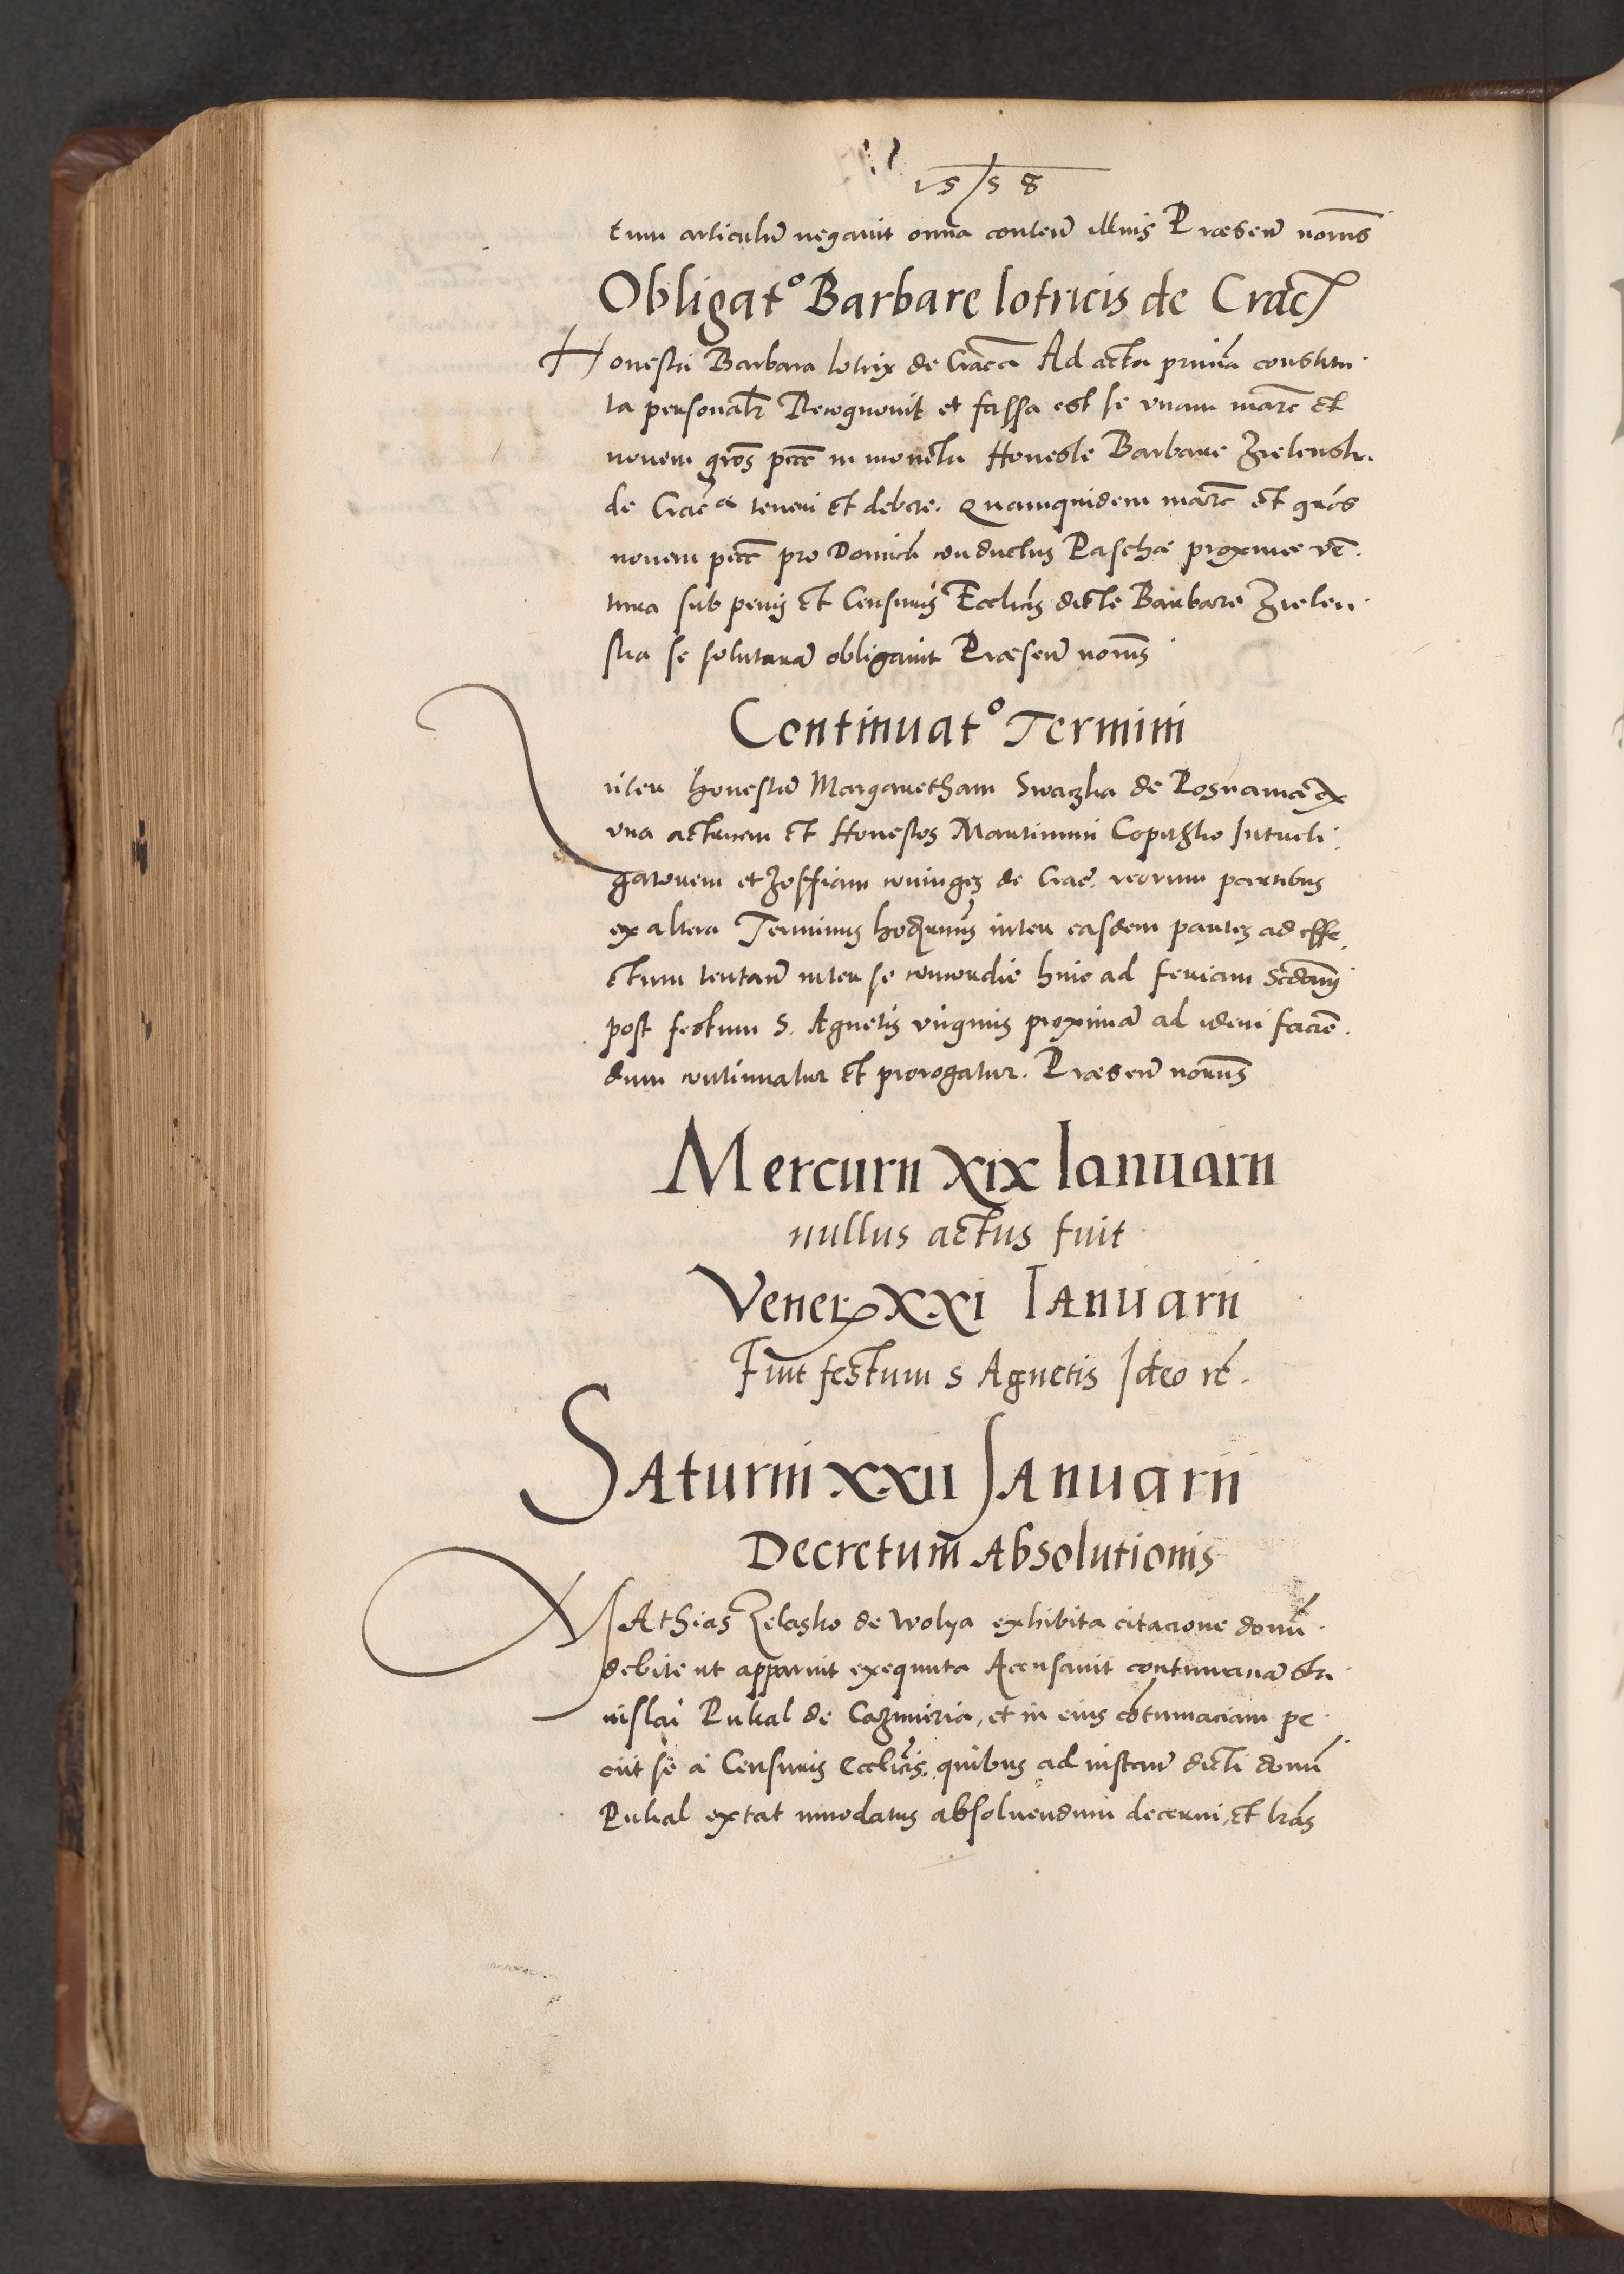 1558
tum articulũ negavit omnia contenĩ illius Præsenĩ noĩris
Obligatº Barbare lotricis de Crac
Honesta Barbara lotrix de Craca Ad acta prñtia constitu
ta personalr Recognovit et fassa est se unam marc̃ et
novem grõs pecc̃ in moneta Honeste Barbare Zielensk.
de Craca teneri et debere. Quamquidem marc̃ et grõs
novem pecc̃ pro Dominica conductus Paschæ proxime vẽ
tura sub penis et Censuris Ecclicis dicte Barbare Zielen
ska se soluturam̃ obligavit Præsenĩ noĩris
Continuatº Termini
Inter honestam̃ Margaretham Swaczka de Posnania ex
una actricem et Honestos Martinum Copythko Intueli
gatorem et Zoffiam coniuges de Crac̃. reorum partibus
ex altera Terminus hodiernus inter easdem partes ad effe
ctum tentanĩ inter se concordie huic ad feriam Scdam
post festum S. Agnetis virginis proximam̃ ad idem facie
dum continuatur et prorogatur. Præsenĩ noĩris
Mercurii XIX Ianuarii
nullus actus fuit
Veneris XXI IAnuarii
Fuit festum s Agnetis Ideo rc̃.
SAturni XXII IAnuarii
Decretum Absolutionis
MAthias Zelasko de Wolya exhibita citacione domĩ
debite ut apparuit exequuta Accusavit contumaciam̃ Sta
nislai Pukal de Cazimiria, et in eius cõtumaciam pe
ciit se a Censuris Ecclicis. quibus ad instanĩ dicti domĩ
Pukal extat innodatus absolvendum decerni, et lrãs